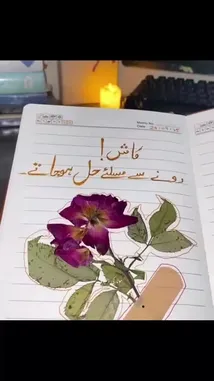 Date
کاش!
رونے سے مسئلے حل ہوجاتے۔